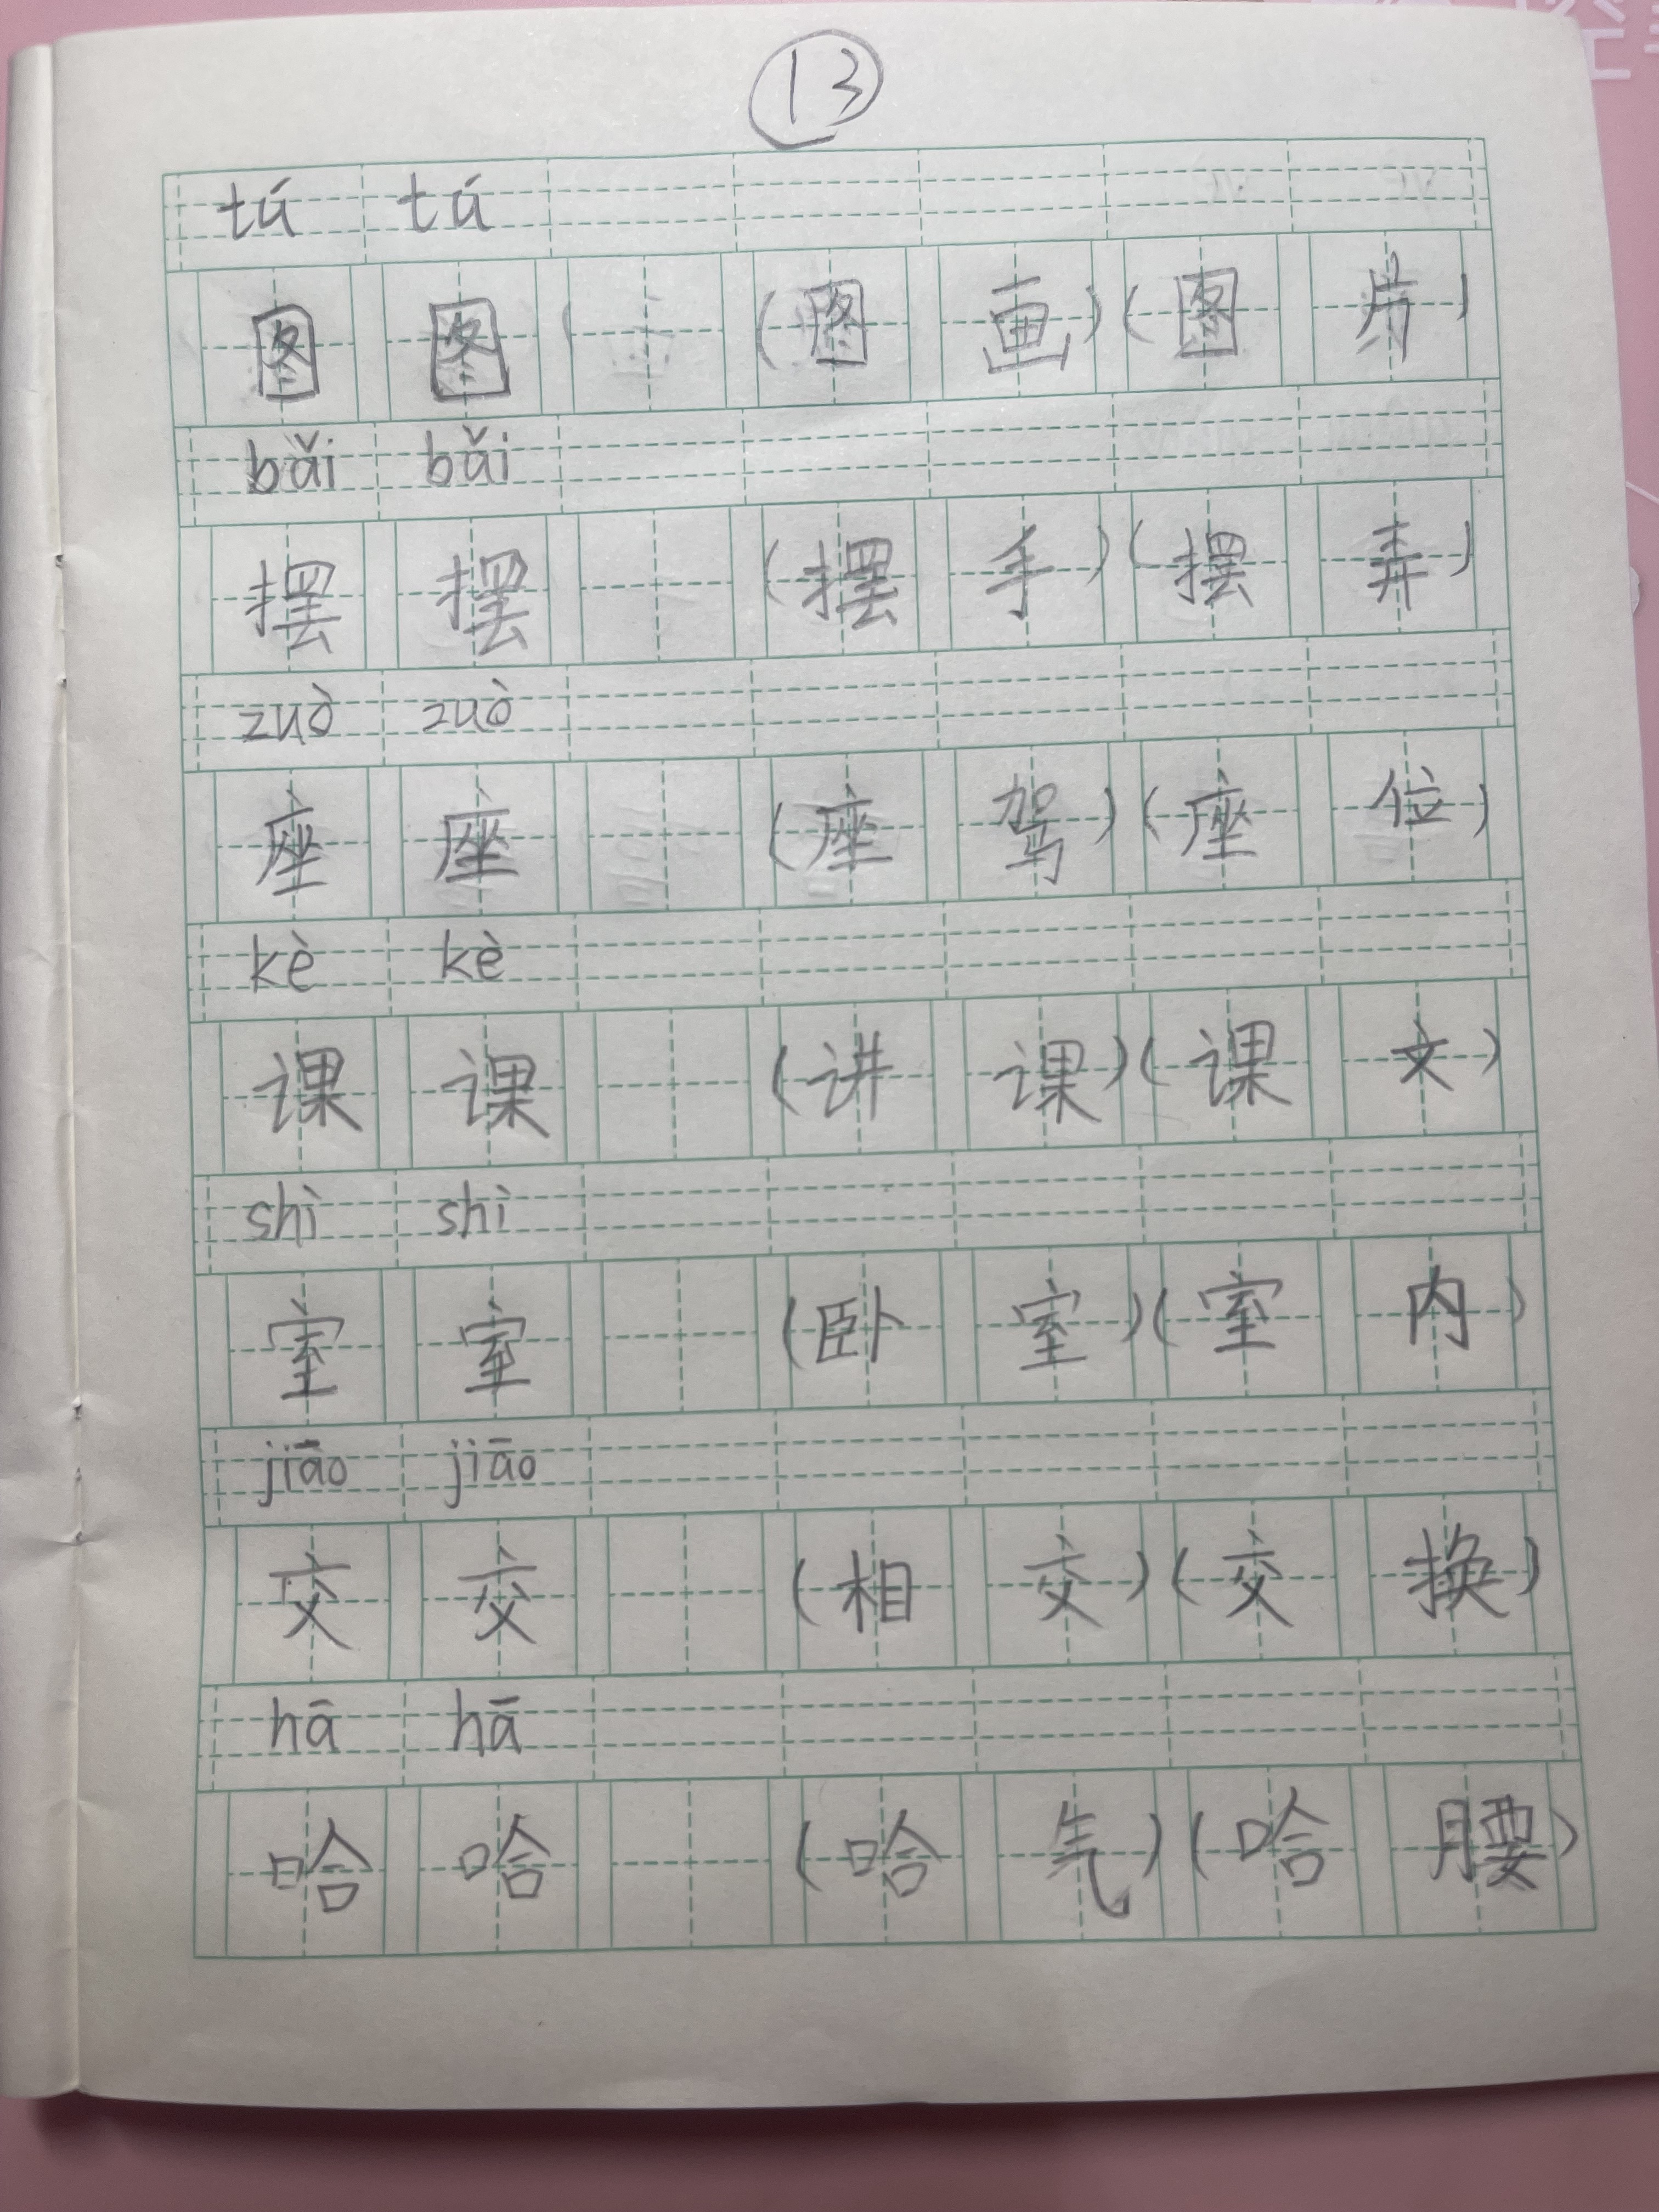 13
tú tú
图 图 (图 画)(图 片)
bǎi bǎi
摆 摆 (摆 手)(摆 弄)
zuò zuò
座 座 (座 驾)(座 位)
kè kè
课 课 (讲 课)(课 文)
shì shì
室 室 (卧 室)(室 内)
jiāo jiāo
交 交 (相 交)(交 换)
hā hā
哈 哈 (哈 气)(哈 腰)